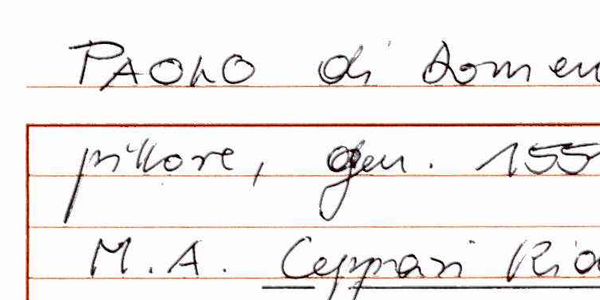 PAOLO di Domen
pittore, gen. 155
M.A. Ceppari Rid